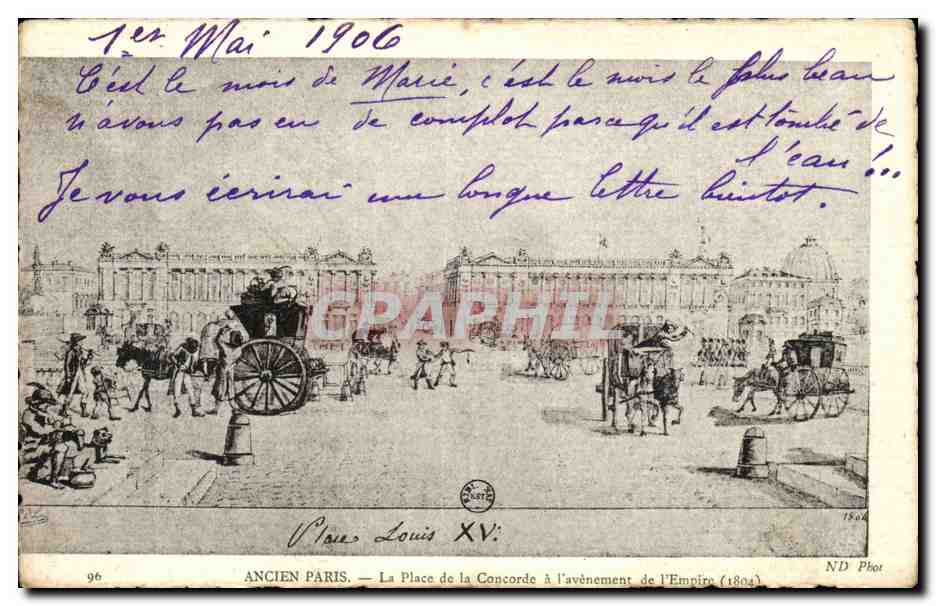 1er Mai 1906
C'est le mois de Marie, c'est le mois le plus beau
n'avons pas eu de complot parcequ'il est tombé de
l'eau!...
Je vous écrirai une longue lettre bientot.
CARTE GRAPHIL
Place Louis XV.
1804
ND Phot
96 ANCIEN PARIS. — La Place de la Concorde à l'avènement de l'Empire (1804)